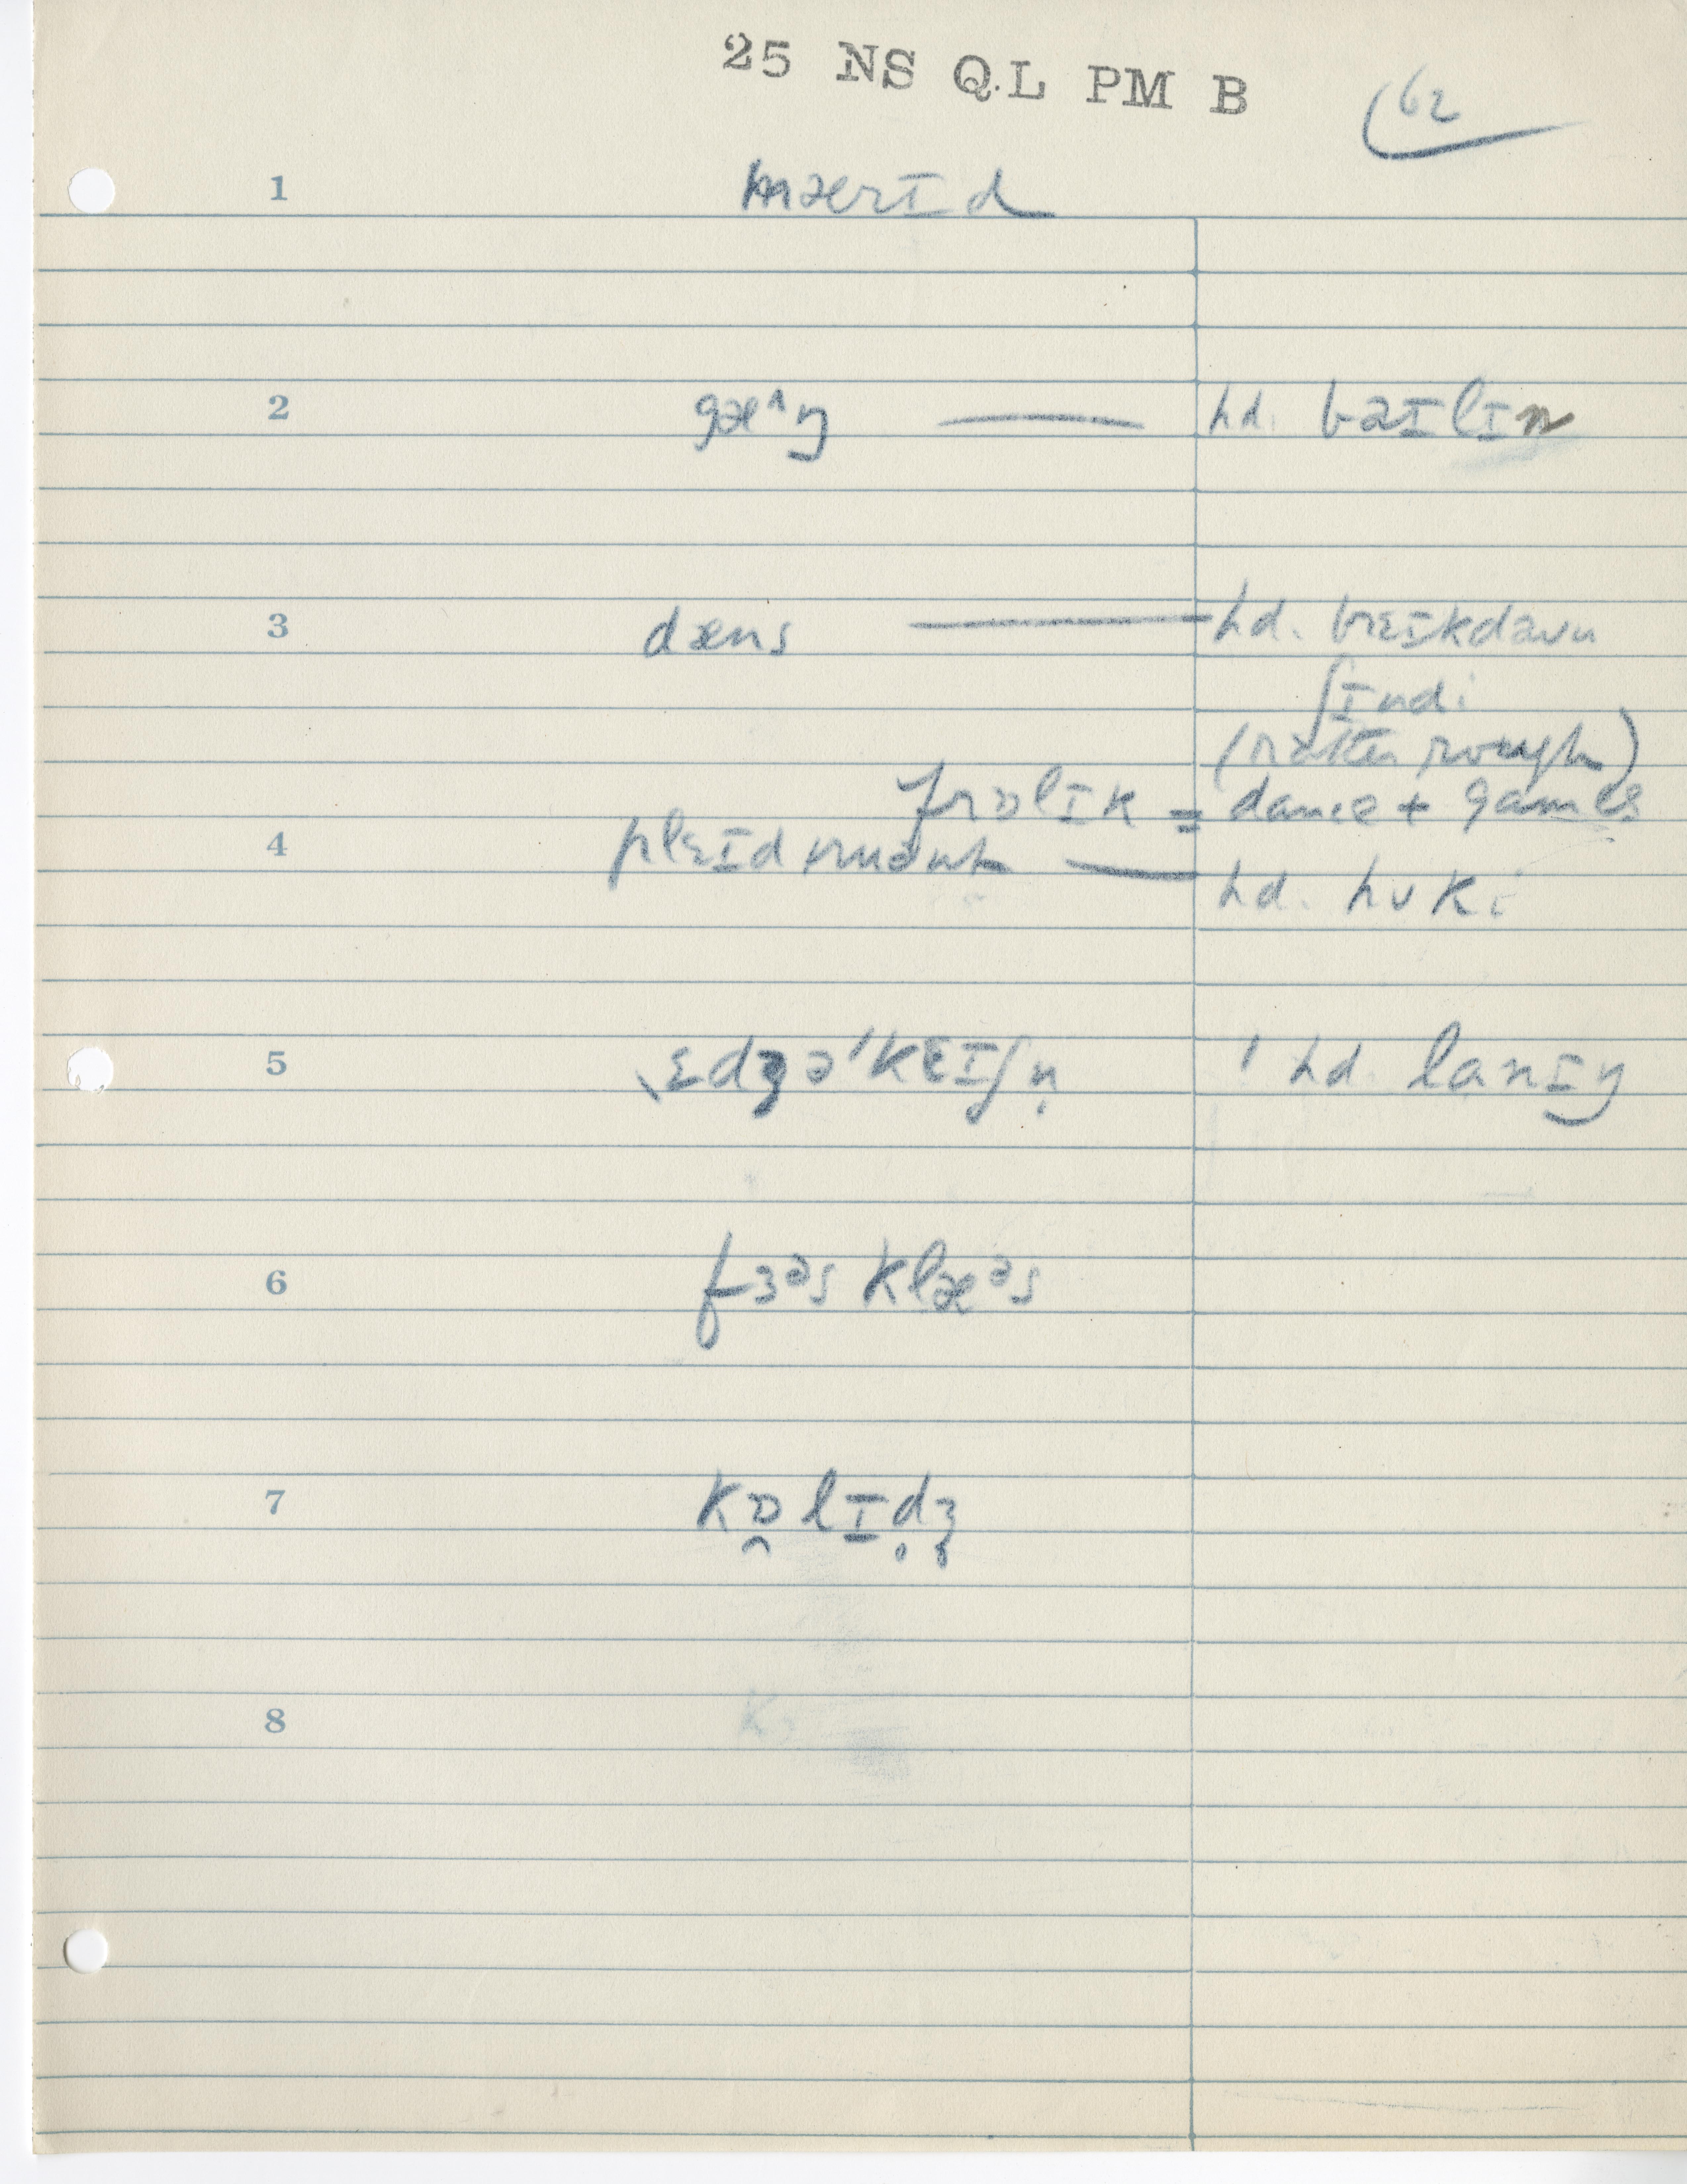 25 NS QL PM B
62
1 mærɪd
2 gæ^ŋ — hd. baɪlɪn
3 dæns — hd. brɛɪkdaʊn
ʃɪndi
(rather rough)
frɒlɪk = dance + games
4 plɛɪd — hd. hʊki
5 ˌɛdʒəˈkɛɪʃn̩ ! hd. lanɪŋ
6 fɜəs klæəs
7 kɒ̯lɪd̥ʒ̥
8 K